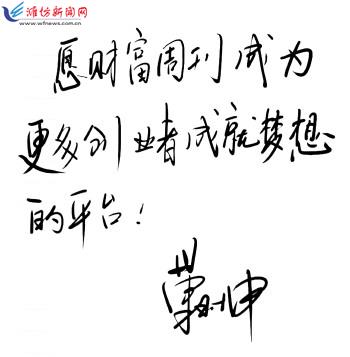 潍坊新闻网
www.wfnews.com.cn
愿财富周刊成为
更多创业者成就梦想
的平台！